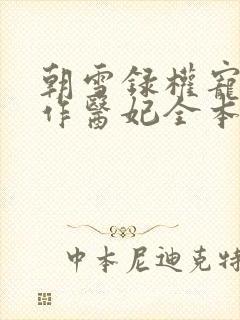 朝雪録權寵
作醫妃全本
中本尼迪克特